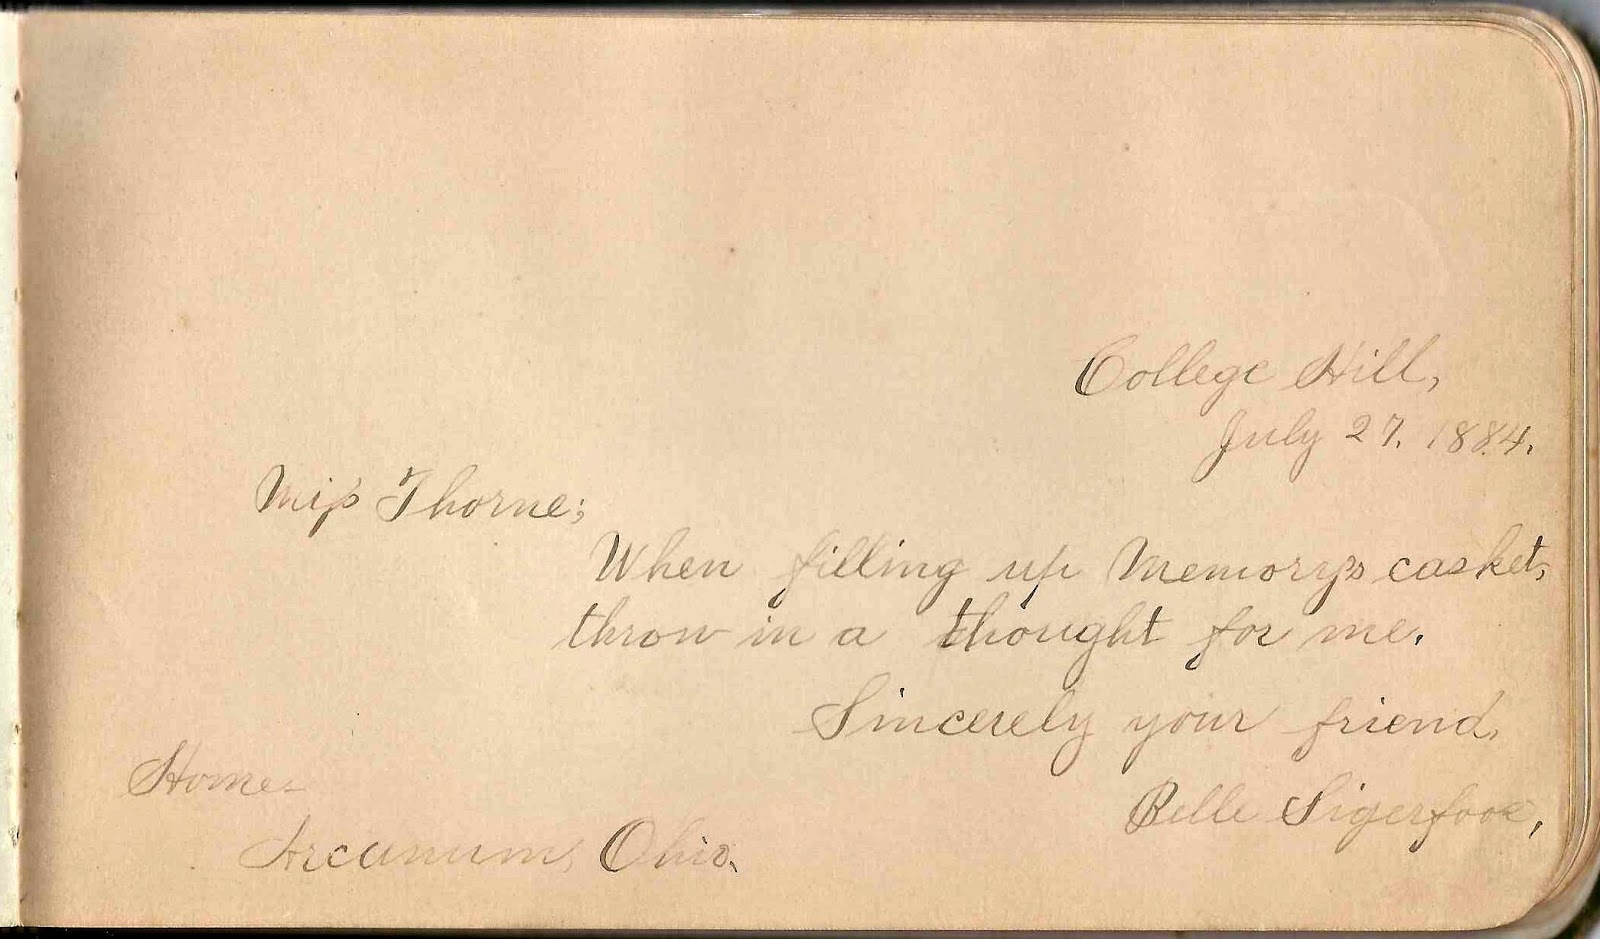 College Hill,
July 27. 1884.
Miss Thorne;
When filling up Memory's casket,
throw in a thought for me.
Sincerely your friend,
Belle Sigerfoos,
Home-
Arcanum, Ohio.